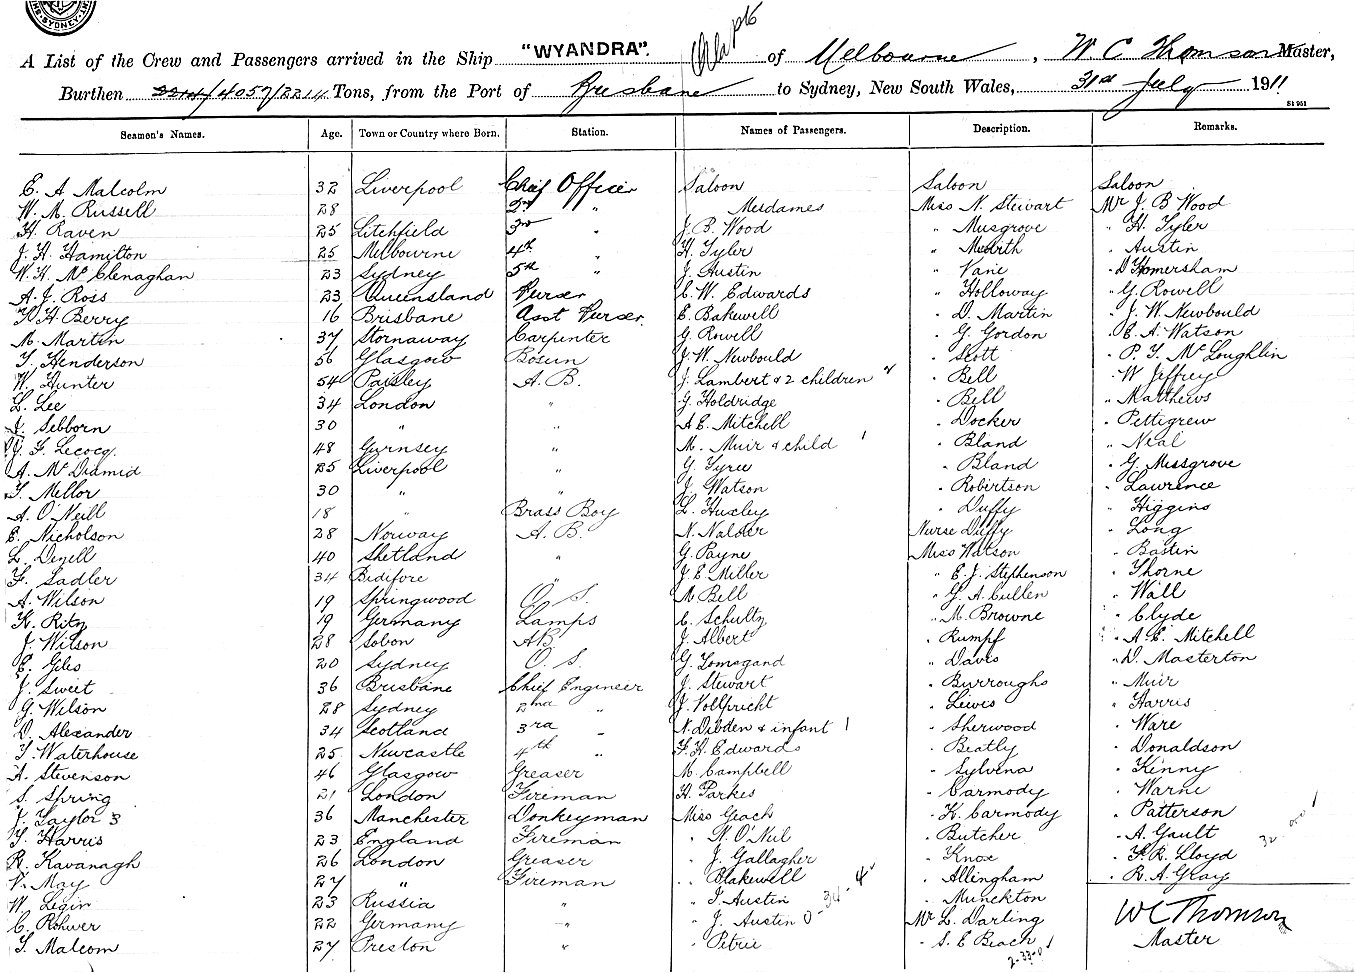 SYDNEY
A List of the Crew and Passengers arrived in the Ship "WYANDRA". of Melbourne, W C Thomson Master,
Burthen 2214/4057/2214 Tons, from the Port of Brisbane to Sydney, New South Wales, 31st July 1911
S1951
Seamen's Names. Age. Town or Country where Born. Station. Names of Passengers. Description. Remarks.
E. A Malcolm 32 Liverpool Chief Officer Saloon Saloon Saloon
W. M. Russell 28 2nd " Mesdames Miss N. Stewart Mr J. B Wood
H. Raven 25 Litchfield 3rd " J. B. Wood " Musgrove " H. Tyler
J. H. Hamilton 25 Melbourne 4th " H. Tyler " " Austin
W. H. McClenaghan 23 Sydney 5th " J. Austin " Vane " D Homersham
A. J. Ross 23 Queensland Purser E. W. Edwards " Holloway " G. Rowell
H Berry 16 Brisbane Asst Purser E. Bakewell " D. Martin " J. W. Newbould
M. Martin 37 Stornaway Carpenter G. Rowell " G. Gordon " E. A. Watson
T. Henderson 56 Glasgow Bosun J. W. Newbould " Scott " P. J. McLoughlin
W. Hunter 54 Paisley A. B. J. Lambert & 2 children " Bell " W Jeffrey
L. Lee 34 London " G Holdridge " Bell " Matthews
J. Sebborn 30 " " A E. Mitchell " Docker " Pettigrew
J. F. Lecocq 48 Gurnsey " M. Muir & child 1 " Bland " Neal
A. McDiamid 25 Liverpool " G. Tyree " Bland " G. Missgrove
T. Mellor 30 " " J Watson " Robertson " Lawrence
A. O'Neill 18 " Brass Boy L. Huxley " Duffy " Higgins
E. Nicholson 28 Norway A. B. N. Nalder Nurse Duffy " Long
L. Deyell 40 Shetland " G. Payne Miss Watson " Bastin
F. Sadler 34 Bidifore " J. E. Miller " E. J. Stephenson " Thorne
A. Wilson 19 Springwood O. S. M Bell " G. A. Cullen " Wall
K. Ritz 19 Germany Lamps C. Schultz " M. Browne " Clyde
J. Wilson 28 Lobon AB J. Albert " Rumpf " A. E. Mitchell
E. Giles 20 Sydney O. S. G. Lomsgand " Davis " D. Masterton
J. Sweet 36 Brisbane Chief Engineer J. Stewart " Burroughs " Muir
G. Wilson 28 Sydney 2nd " J. Vollpricht " Lewis " Harris
D. Alexander 34 Scotland 3rd " N. Dibden & infant 1 " Sherwood " Ware
T. Waterhouse 25 Newcastle 4th " F. H. Edwards " Beatly " Donaldson
A. Stevenson 46 Glasgow Greaser M. Campbell " Sylvina " Kenny
S. Spring 21 London Fireman H. Parkes " Carmody " Warne
J. Taylor 3 36 Manchester Donkeyman Miss Geach " K. Carmody " Patterson
T. Harris 23 England Fireman " N. O'Neil " Butcher " A. Gault
R. Kavanagh 26 London Greaser " J. Gallagher " Knox " F. R. Lloyd
V. May 27 " Fireman " Blakewell " Allingham " R. A. Gray
W. Legin 23 Russia " " I. Austin " Munckton
C. Rohwer 22 Germany " " J. Austin 0-34-4 Mr L. Darling WCThomson
T. Malcom 27 Preston " " Petrie " S. E Beach 1 Master
2-33-0